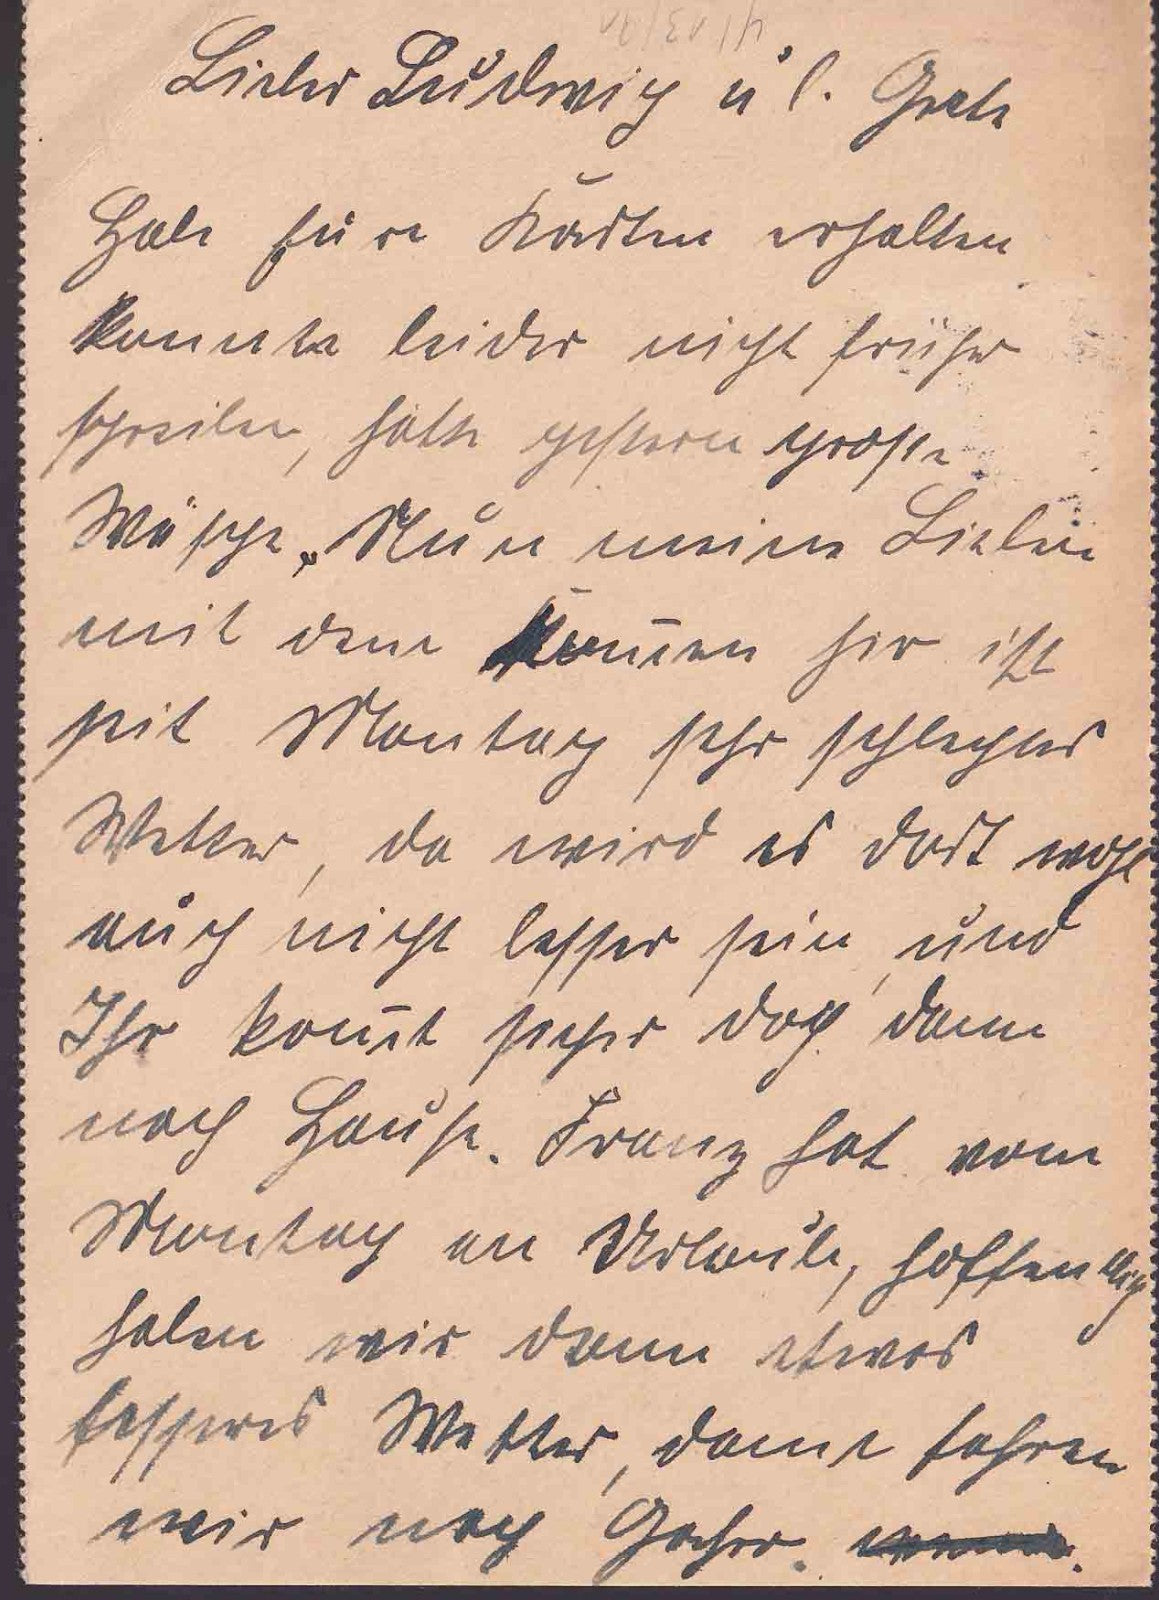 Lieber Ludwig u l. Grete
Habe Eure Karten erhalten
konnte leider nicht früher
schreiben, hatte gestern große
Wäsche. Nun meine Lieben
mit dem kom̄en hir ist
seit Montag sehr schlechtes
Wetter, da wird es dort wohl
auch nicht besser sein, und
Ihr kom̄t sicher doch dann
nach Hause. Franz hat vom
Montag an Urlaub, hoffentlich
haben wir dann etwas
besseres Wetter, dann fahren
wir nach